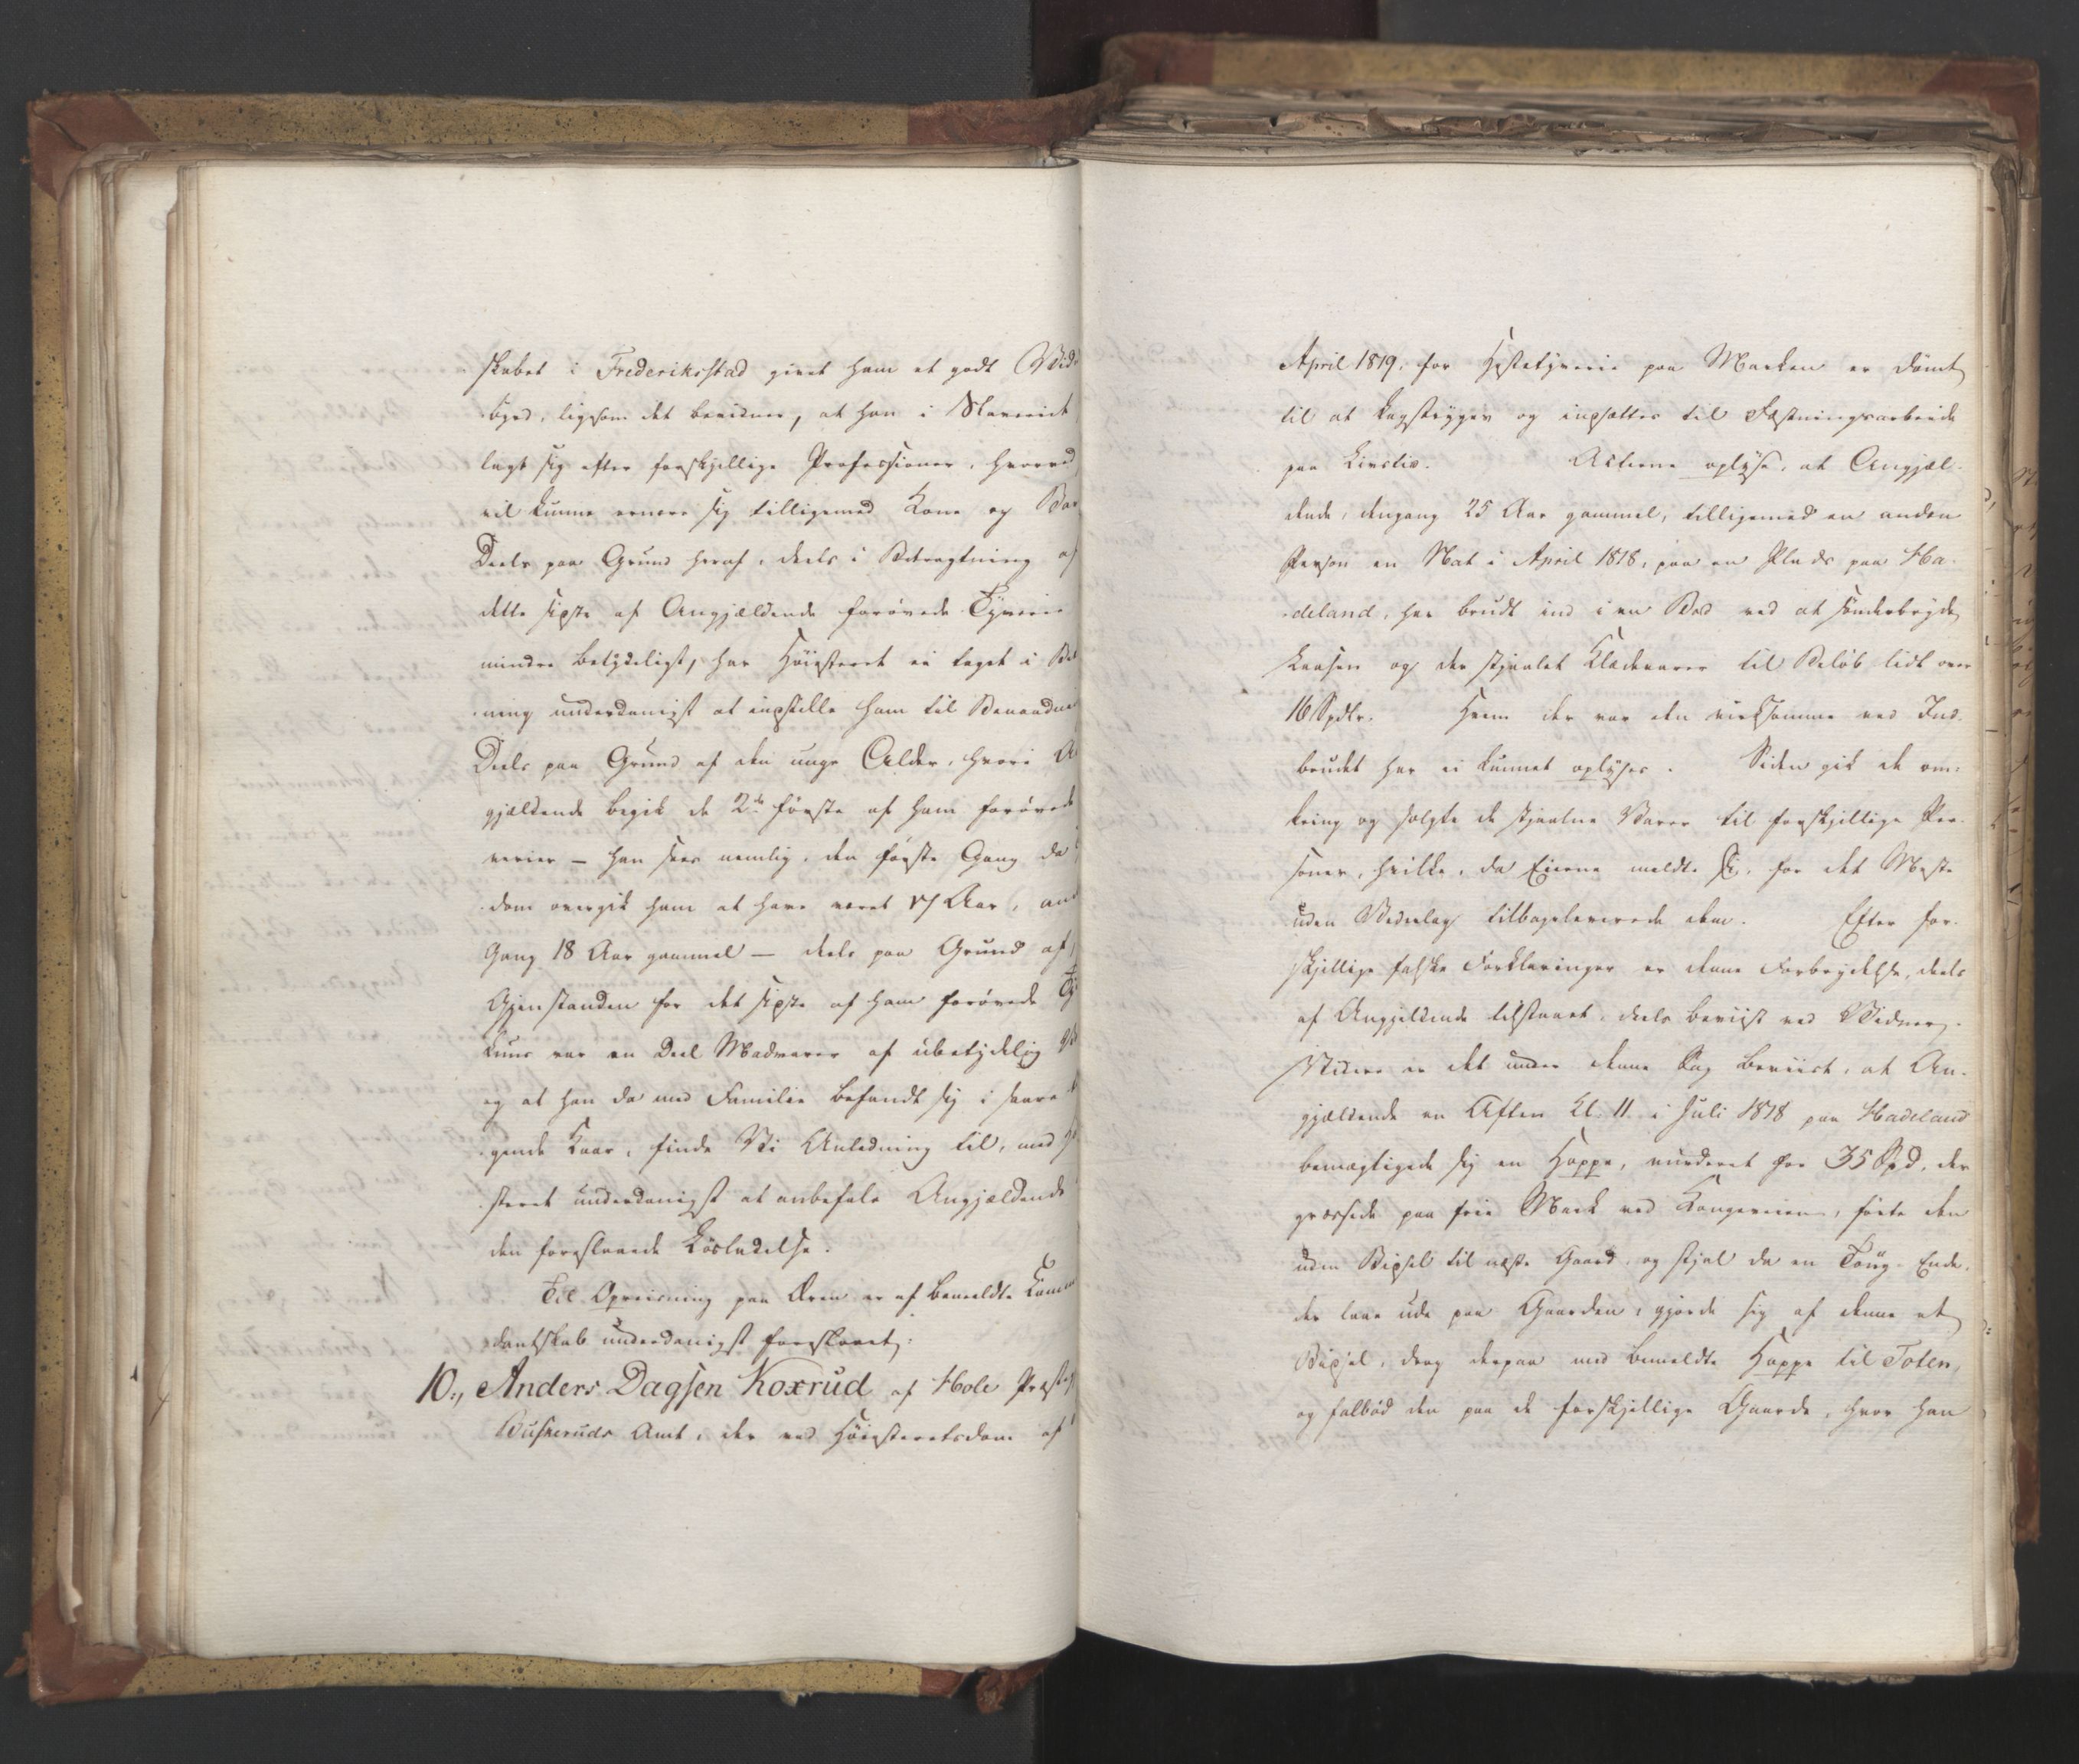 skabet i Frederiksstad givet ham et godt Vid
byrd, ligesom det bevidner, at han i Slaveriet
lagt sig efter forskjellige Professioner, hvorved
vil kunne ernære sig tilligemed Kone og Bør
Deels paa Grund heraf, deels i Betragtning af
dette sidste af Angjældende forøvede Tyverie
mindre betydeligt, har Høiesteret ei taget i Be
ning underdanigst at indstille ham til Benaadni
Deels paa Grund af den unge Alder, hvori A
gjældende begik de 2de første af ham forøvede
verier – han sees nemlig, den første Gang da
dom overgik ham at have været 17 Aar, and
Gang 18 Aar gammel – deels paa Grund af,
Gjenstanden for det sidste af ham forøvede Ty
kuns var en Deel Madvarer af ubetydelig
og at han da med Familie befandt sig i saare
gende Kaar, finde Vi Anledning til, med H
steret underdanigst at anbefale Angjældende
den foreslaaede Løsladelse.
Til Opreisning paa Æren er af bemeldte Comm
dantskab underdanigst foreslaaet:
10., Anders Dagsen Koxrud af Hole Præste
Buskeruds Amt, der ved Høiesteretsdom af
April 1819, for Hestetyverie paa Marken er dømt
til at kagstryges og indsættes til Fæstningsarbeide
paa Livstid. Acterne oplyse, at Angjæl-
dende, dengang 25 Aar gammel, tilligemed en anden
Person en Nat i April 1818, paa en Plads paa Ha-
deland, har brudt ind i en Bod ved at sønderbryde
Laasen og der stjaalet Klædevarer til Beløb lidt over
16 Spdlr. Hvem der var den virksomme ved Ind-
bruddet har ei kunnet oplyses. Siden gik de om-
kring og solgte de stjaalne Varer til forskjellige Per-
soner, hvilke, da Eierne meldte sig, for det Meste
uden Vederlag tilbageleverede dem. Efter for-
skjellige falske Forklaringer er denne Forbrydelse, deels
af Angjeldende tilstaaet, deels beviist ved Vidner.
Videre er det under denne Sag beviist, at An-
gjældende en Aften Kl. 11 i Juli 1818 paa Hadeland
bemægtigede sig en Hoppe, vurderet for 35 Spd, der
græssede paa frie Mark ved Kongeveien, førte den
uden Bidsel til næste Gaard og stjal da en Toug-Ende,
der laae ude paa Gaarden, gjorde sig af denne et
Bidsel, drog derpaa med bemeldte Hoppe til Toten,
og falbød den paa de forskjellige Gaarde, hvor han